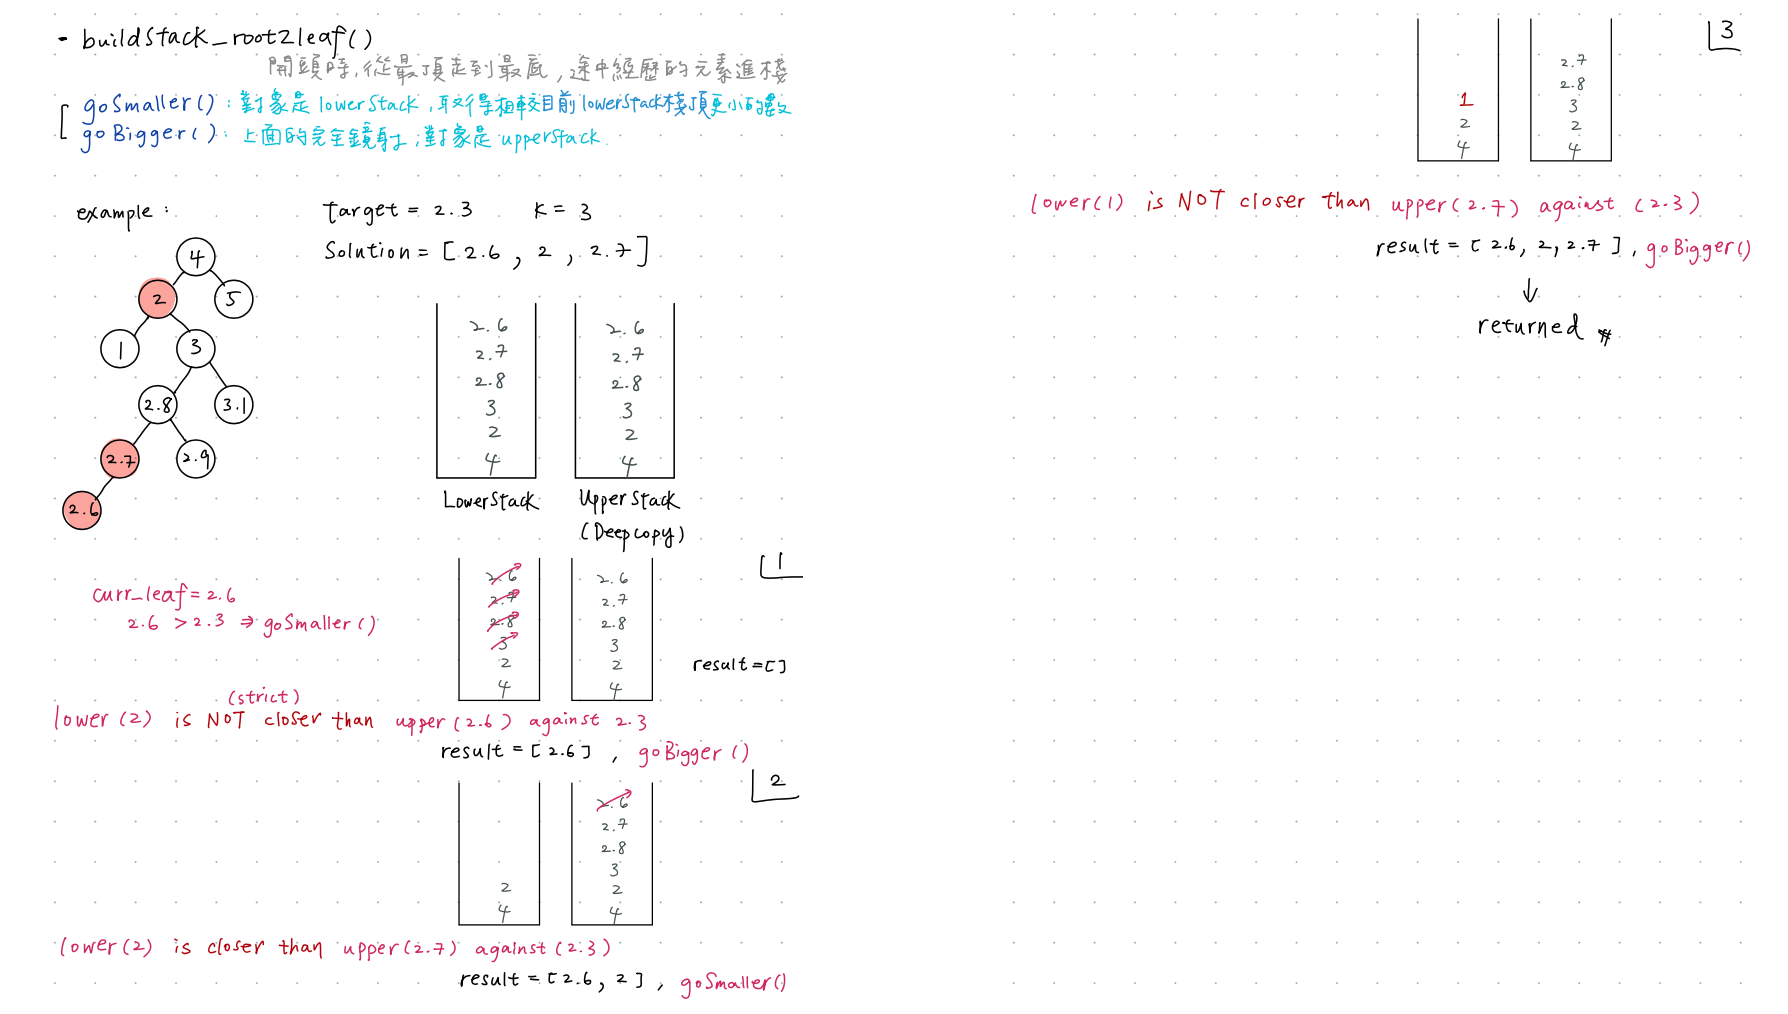 - buildStack_root2leaf()
開頭時,從最頂走到最底,途中經歷的元素進棧
goSmaller(): 對象是lowerStack,取得相較目前lowerStack棧頂更小的數
goBigger(): 上面的完全鏡射,對象是upperStack.
example:
Target = 2.3 K = 3
Solution = [2.6, 2, 2.7]
4
2 5
1 3
2.8 3.1
2.7 2.9
2.6
2.6 2.6
2.7 2.7
2.8 2.8
3 3
2 2
4 4
LowerStack UpperStack
(Deepcopy)
1
curr_leaf = 2.6
2.6 > 2.3 ⇒ goSmaller()
2.6 2.6
2.7 2.7
2.8 2.8
3 3
2 2
4 4
result=[]
(strict)
lower(2) is NOT closer than upper(2.6) against 2.3
result = [2.6], goBigger()
2
2.6
2.7
2.8
3
2 2
4 4
lower(2) is closer than upper(2.7) against (2.3)
result = [2.6, 2], goSmaller()
3
2.7
2.8
1 3
2 2
4 4
lower(1) is NOT closer than upper(2.7) against (2.3)
result = [2.6, 2, 2.7], goBigger()
↓
returned #